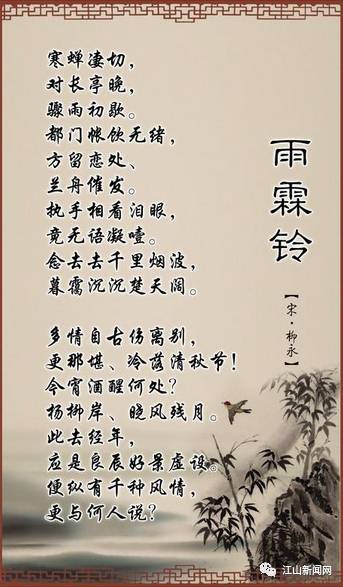 雨霖铃
【宋·柳永】
寒蝉凄切，
对长亭晚，
骤雨初歇。
都门帐饮无绪，
方留恋处、
兰舟催发。
执手相看泪眼，
竟无语凝噎。
念去去千里烟波，
暮霭沉沉楚天阔。
多情自古伤离别，
更那堪、冷落清秋节！
今宵酒醒何处？
杨柳岸、晓风残月。
此去经年，
应是良辰好景虚设。
便纵有千种风情，
更与何人说？
江山新闻网